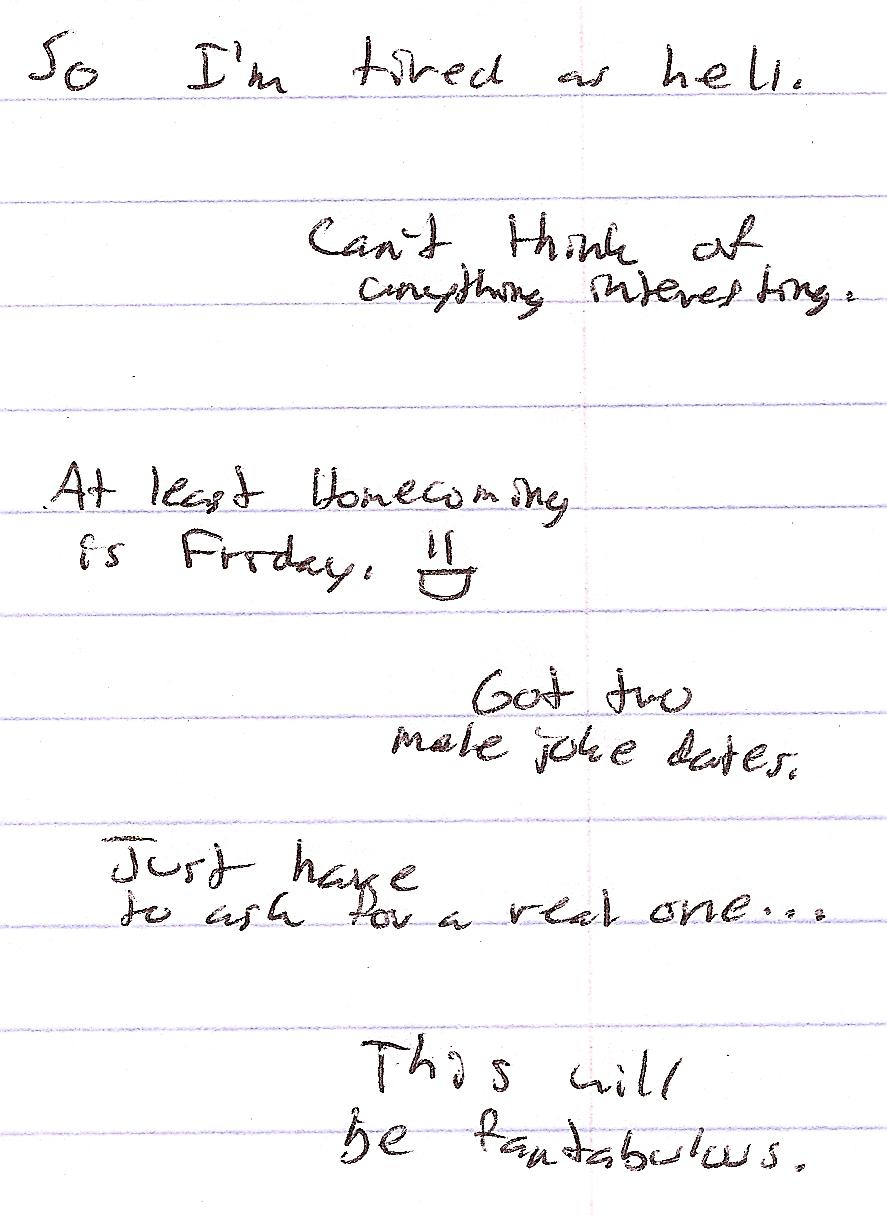 So I'm tired as hell.
Can't think of
anything interesting.
At least Homecoming
is Friday.
Got two
male joke dates.
Just have
to ask for a real one...
This will
be fantabulous.